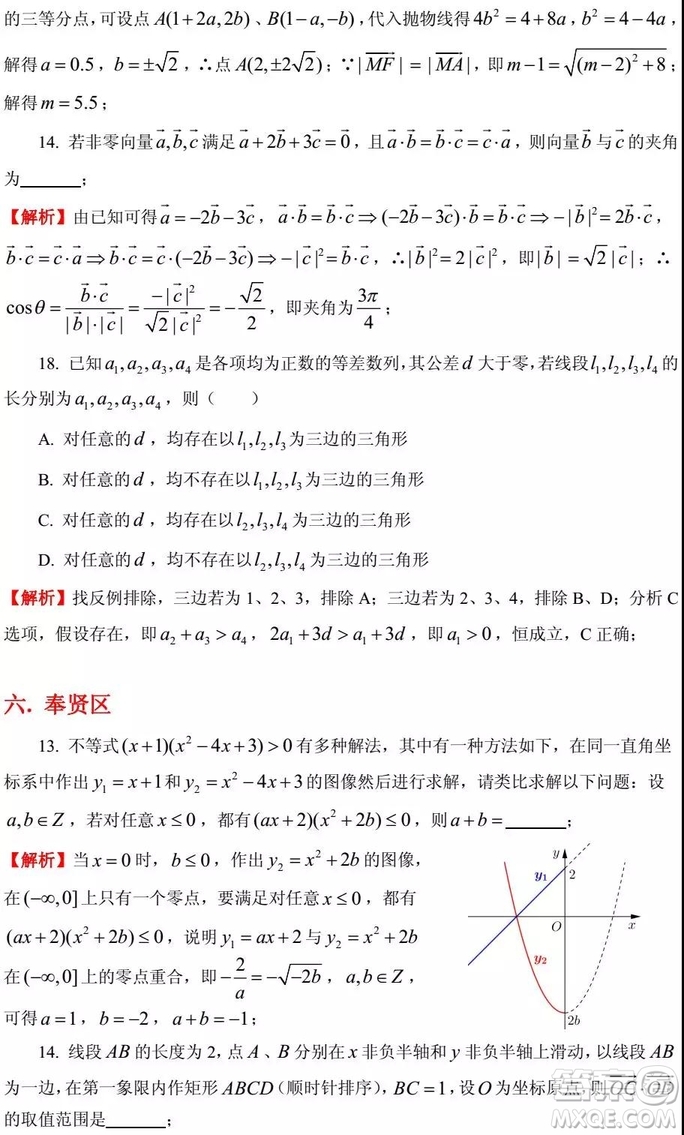 的三等分点，可设点 A(1+2a,2b)、B(1−a,−b)，代入抛物线得 4b²=4+8a，b²=4−4a，
解得 a=0.5，b=±√2，∴点 A(2,±2√2)；∵|MF⃗|=|MA⃗|，即 m−1=√((m−2)²+8)；
解得 m=5.5；
14. 若非零向量 a⃗,b⃗,c⃗ 满足 a⃗+2b⃗+3c⃗=0⃗，且 a⃗·b⃗=b⃗·c⃗=c⃗·a⃗，则向量 b⃗ 与 c⃗ 的夹角
为______；
【解析】由已知可得 a⃗=−2b⃗−3c⃗，a⃗·b⃗=b⃗·c⃗⇒(−2b⃗−3c⃗)·b⃗=b⃗·c⃗⇒−|b⃗|²=2b⃗·c⃗，
b⃗·c⃗=c⃗·a⃗⇒b⃗·c⃗=c⃗·(−2b⃗−3c⃗)⇒−|c⃗|²=b⃗·c⃗，∴|b⃗|²=2|c⃗|²，即|b⃗|=√2|c⃗|；∴
cosθ=(b⃗·c⃗)/(|b⃗|·|c⃗|)=(−|c⃗|²)/(√2|c⃗|²)=−√2/2，即夹角为 3π/4；
18. 已知 a₁,a₂,a₃,a₄ 是各项均为正数的等差数列，其公差 d 大于零，若线段 l₁,l₂,l₃,l₄ 的
长分别为 a₁,a₂,a₃,a₄，则（ ）
A. 对任意的 d，均存在以 l₁,l₂,l₃ 为三边的三角形
B. 对任意的 d，均不存在以 l₁,l₂,l₃ 为三边的三角形
C. 对任意的 d，均存在以 l₂,l₃,l₄ 为三边的三角形
D. 对任意的 d，均不存在以 l₂,l₃,l₄ 为三边的三角形
【解析】找反例排除，三边若为 1、2、3，排除 A；三边若为 2、3、4，排除 B、D；分析 C
选项，假设存在，即 a₂+a₃>a₄，2a₁+3d>a₁+3d，即 a₁>0，恒成立，C 正确；
六. 奉贤区
13. 不等式 (x+1)(x²−4x+3)>0 有多种解法，其中有一种方法如下，在同一直角坐
标系中作出 y₁=x+1 和 y₂=x²−4x+3 的图像然后进行求解，请类比求解以下问题：设
a,b∈Z，若对任意 x≤0，都有 (ax+2)(x²+2b)≤0，则 a+b=______；
【解析】当 x=0 时，b≤0，作出 y₂=x²+2b 的图像，
在 (−∞,0] 上只有一个零点，要满足对任意 x≤0，都有
(ax+2)(x²+2b)≤0，说明 y₁=ax+2 与 y₂=x²+2b
在 (−∞,0] 上的零点重合，即 −2/a=−√(−2b)，a,b∈Z，
可得 a=1，b=−2，a+b=−1；
y
y₁
2
O
x
y₂
2b
14. 线段 AB 的长度为 2，点 A、B 分别在 x 非负半轴和 y 非负半轴上滑动，以线段 AB
为一边，在第一象限内作矩形 ABCD（顺时针排序），BC=1，设 O 为坐标原点，则 OC⃗·OD⃗
的取值范围是______；
MXQE.COM